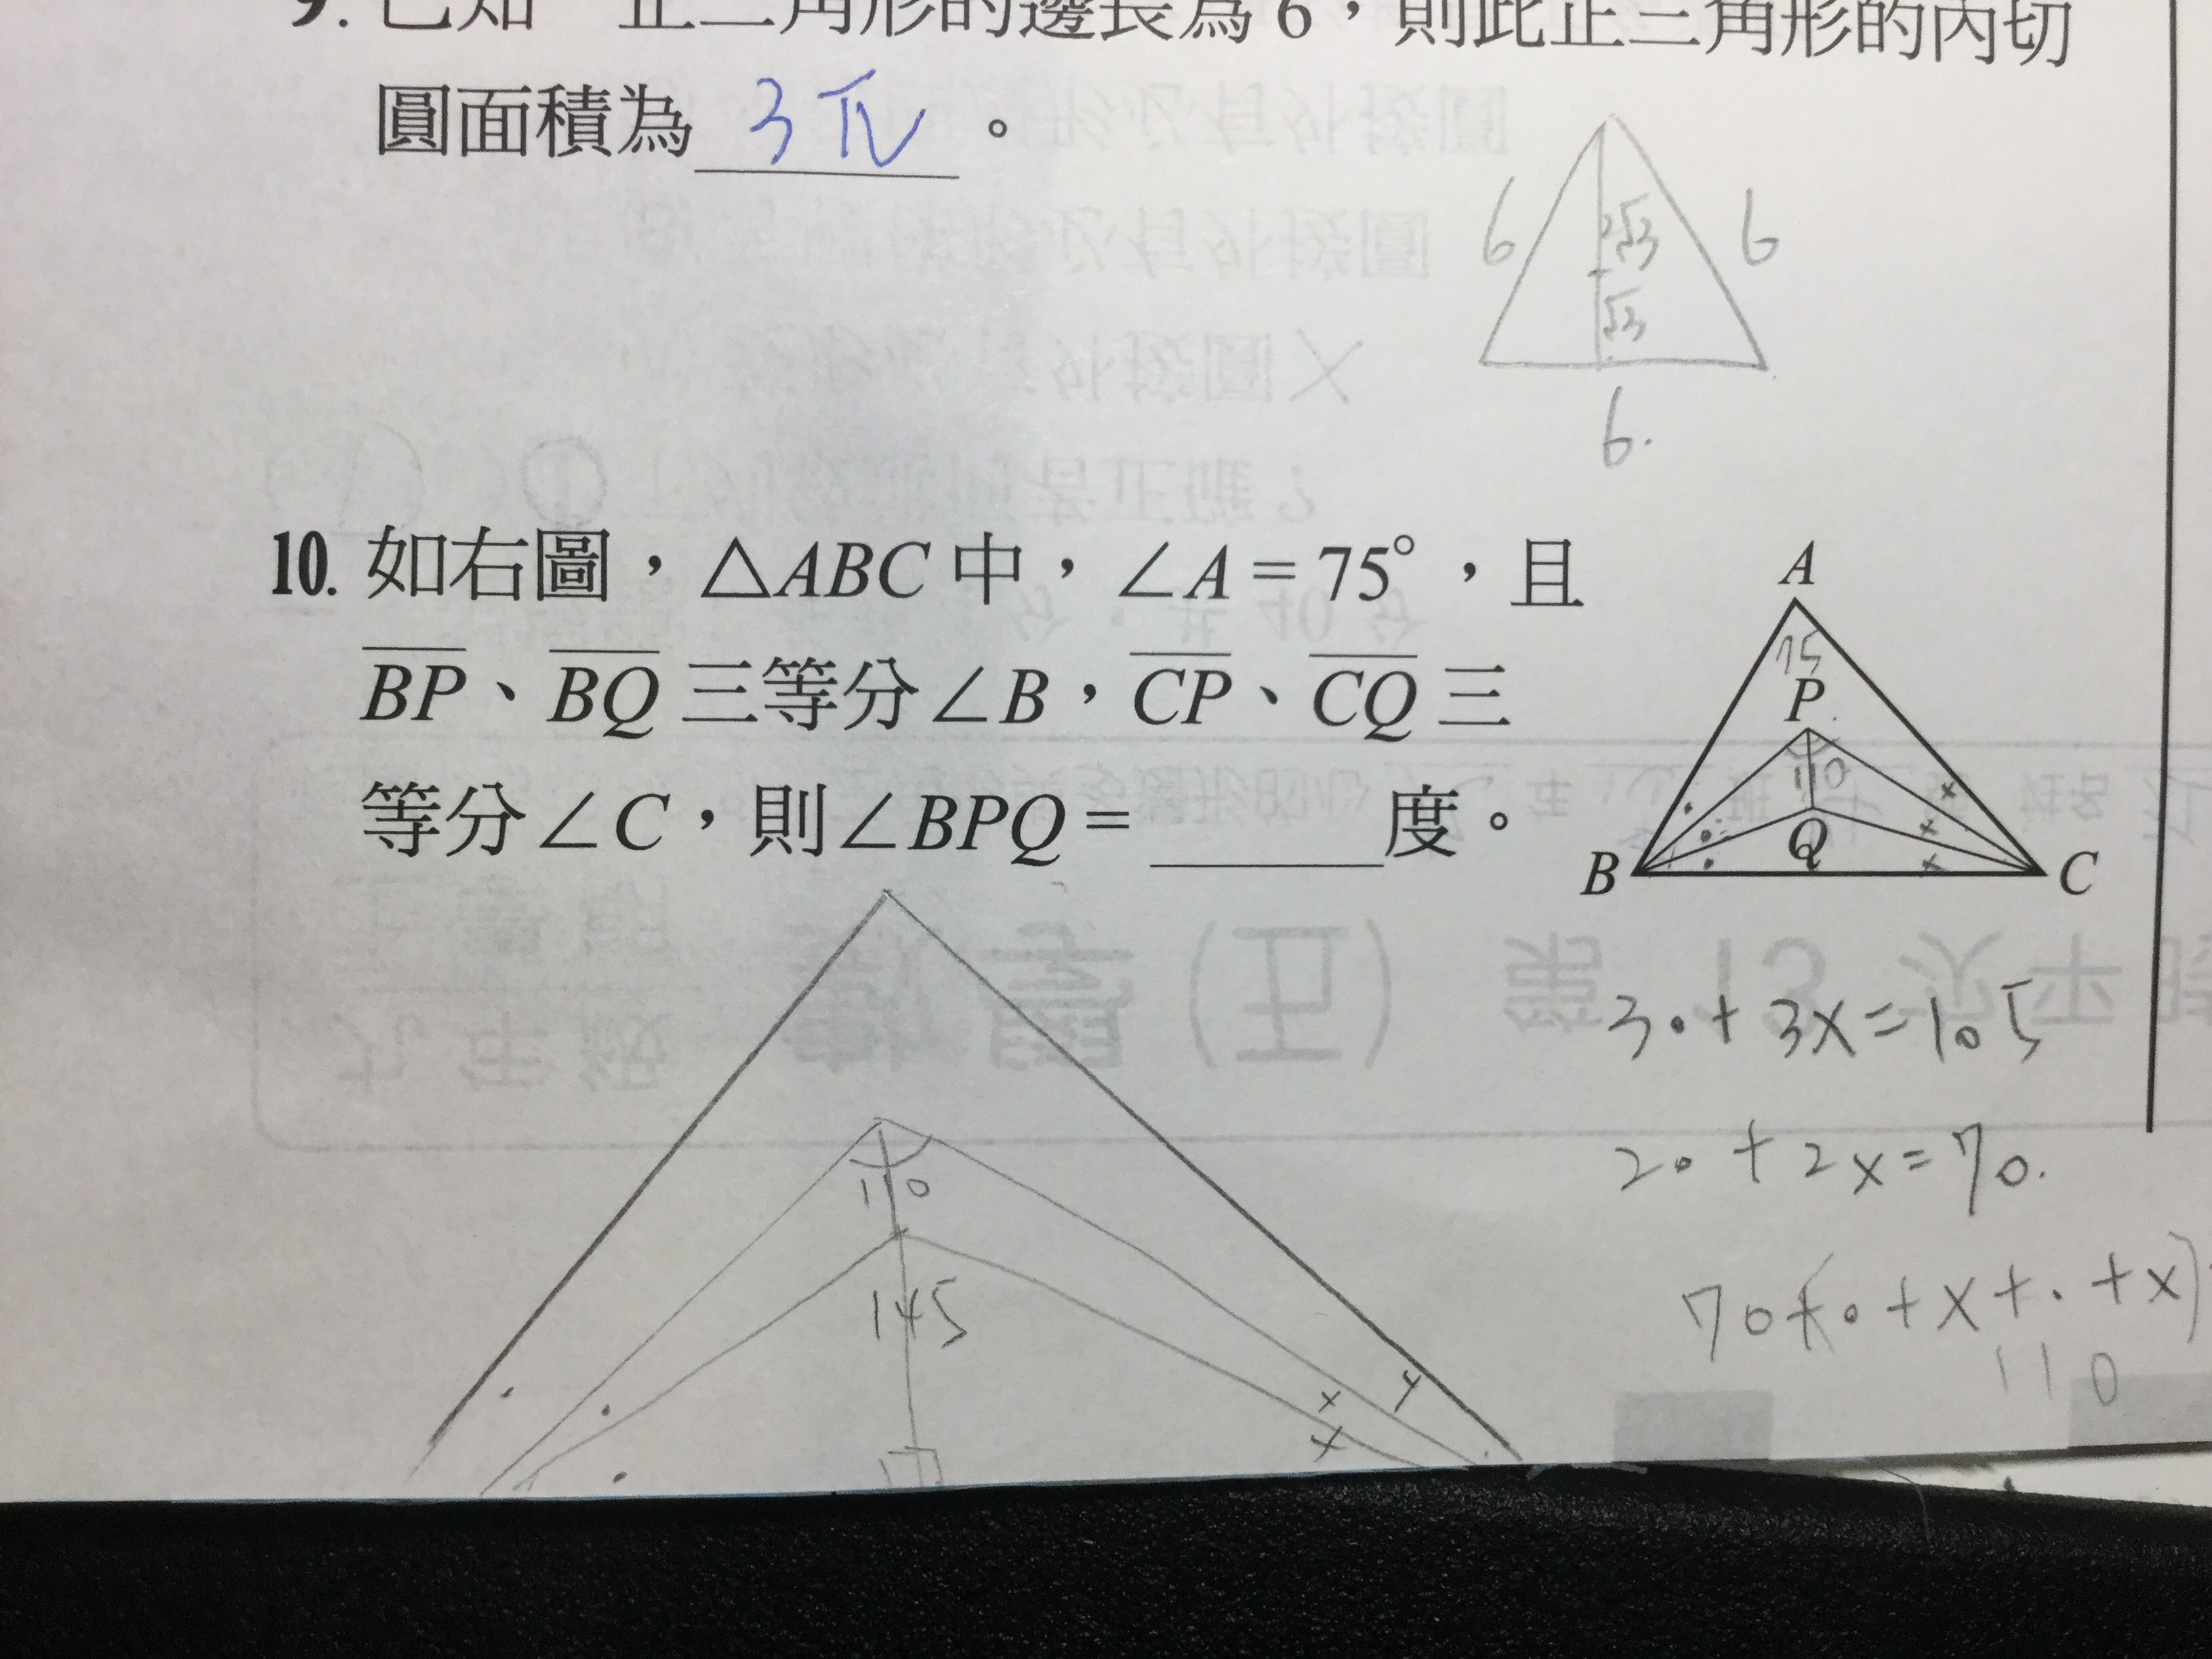 9. 已知一正三角形的邊長為6，則此正三角形的內切
圓面積為 3π 。
6
2√3
6
√3
6.
10. 如右圖，△ABC 中，∠A = 75°，且
BP、BQ 三等分∠B，CP、CQ 三
等分∠C，則∠BPQ = ______度。
A
75
P
110
Q
B
C
3•+3x=105
2•+2x=70.
70+(•+x+•+x)
110
110
145